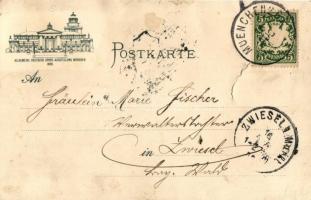 MUENCHEN
BAYERN
ALLGEMEINE DEUTSCHE SPORT-AUSSTELLUNG MÜNCHEN
1899
POSTKARTE
An
Fräulein Marie Fischer
Verwalterstochter
ZWIESEL
in Zwiesel
bay. Wald